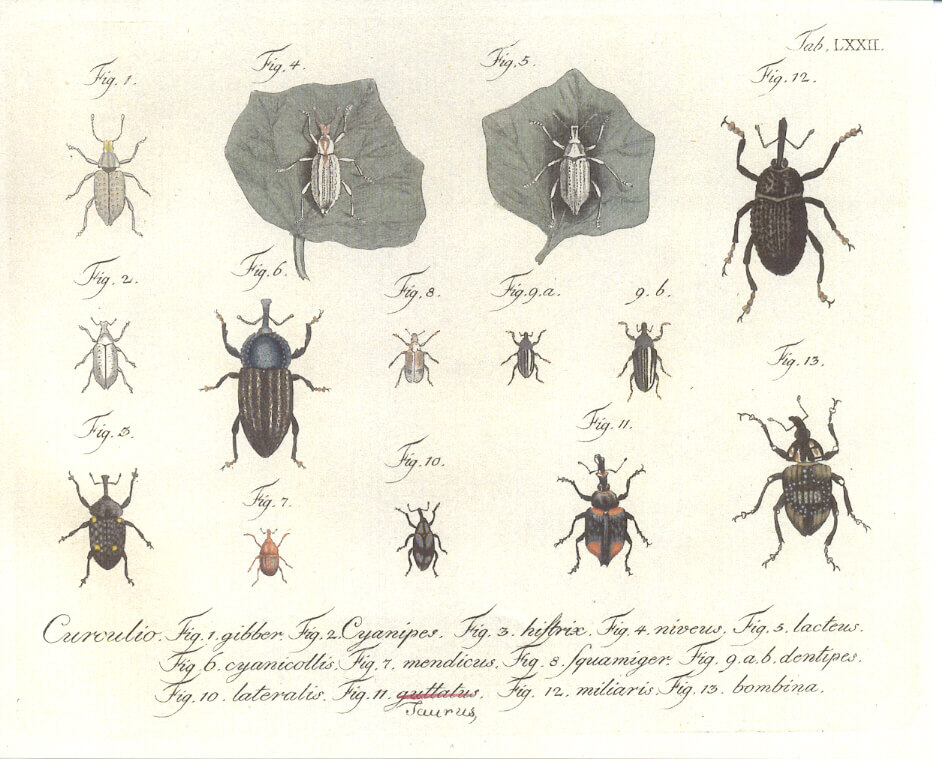 Tab. LXXII.
Fig. 1.
Fig. 4.
Fig. 5.
Fig. 12.
Fig. 2.
Fig. 6.
Fig. 8.
Fig. 9. a.
9. b.
Fig. 13.
Fig. 3.
Fig. 11.
Fig. 10.
Fig. 7.
Curculio. Fig. 1. gibber. Fig. 2. Cyanipes. Fig. 3. hiſtrix. Fig. 4. niveus. Fig. 5. lacteus.
Fig. 6. cyanicollis. Fig. 7. mendicus. Fig. 8. ſquamiger. Fig. 9. a. b. dentipes.
Fig. 10. lateralis. Fig. 11. guttatus. Fig. 12. miliaris. Fig. 13. bombina.
Taurus,